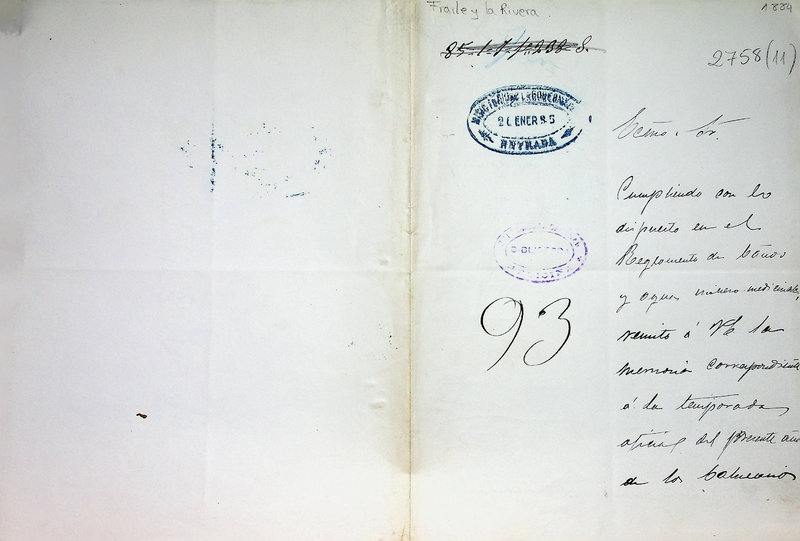 Fraile y la Rivera
1884
85-1-1-1º 233 8.
2758 (11)
MINISTERIO DE LA GOBERNACION
26 ENER 85
ENTRADA
BIBLIOTECA
MEDICINA
93
Ecmo. Sr.
Cumpliendo con lo
dispuesto en el
Reglamento de baños
y aguas minero-medicinales,
remito á VE la
memoria correspondiente
á la temporada
oficial del presente año
de los balnearios